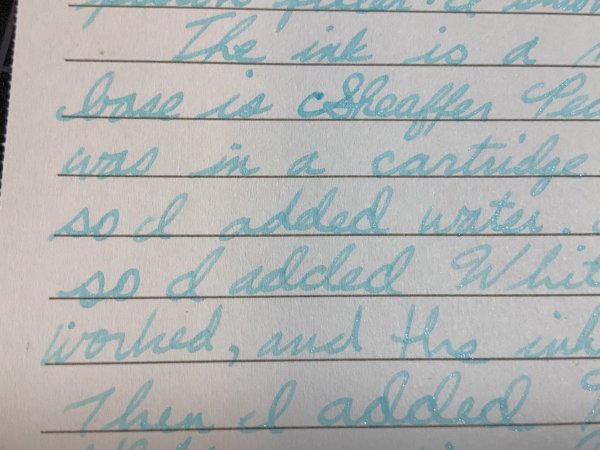 The ink is a
base is Sheaffer
was in a cartridge
so I added water.
so I added
worked, and the ink
Then I added